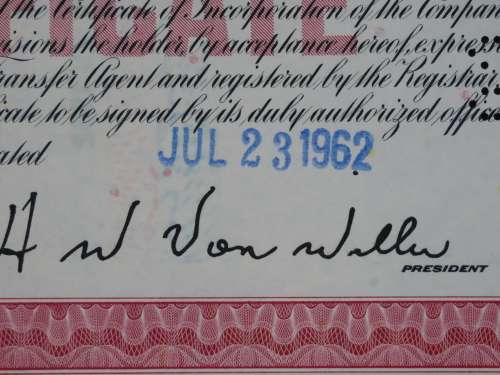 the Certificate of Incorporation of the Company
the holder by acceptance hereof, express
ransfer Agent and registered by the Registrar
icate to be signed by its duly authorized, offic
JUL 23 1962
H W Von Willer
PRESIDENT